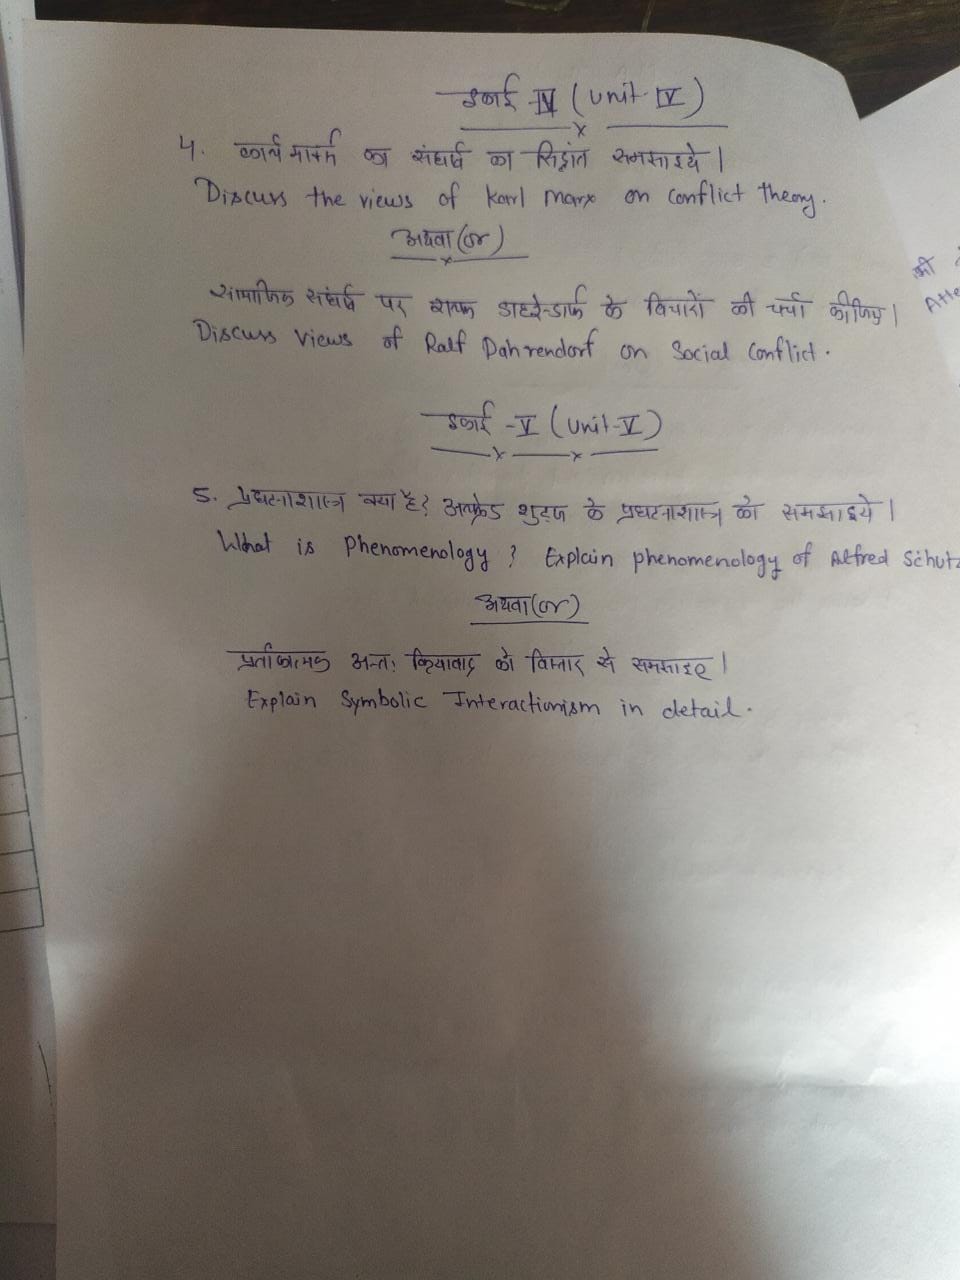 इकाई -IV (Unit-IV)
4. कार्ल मार्क्स का संघर्ष का सिद्धांत समझाइये।
Discuss the views of Karl Marx on Conflict Theory.
अथवा (or)
सामाजिक संघर्ष पर राल्फ डाहरेन्डार्फ के विचारों की चर्चा कीजिए।
Discuss Views of Ralf Dahrendorf on Social Conflict.
इकाई -V (Unit-V)
5. प्रघटनाशास्त्र क्या है? अल्फ्रेड शुट्ज के प्रघटनाशास्त्र को समझाइये।
What is Phenomenology? Explain phenomenology of Alfred Schutz
अथवा (or)
प्रतीकात्मक अन्तः क्रियावाद को विस्तार से समझाइए।
Explain Symbolic Interactionism in detail.
की
Atte